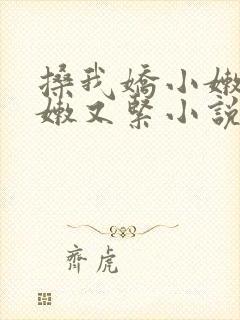 搡我嬌小嫩
嫩又緊小說
齊虎